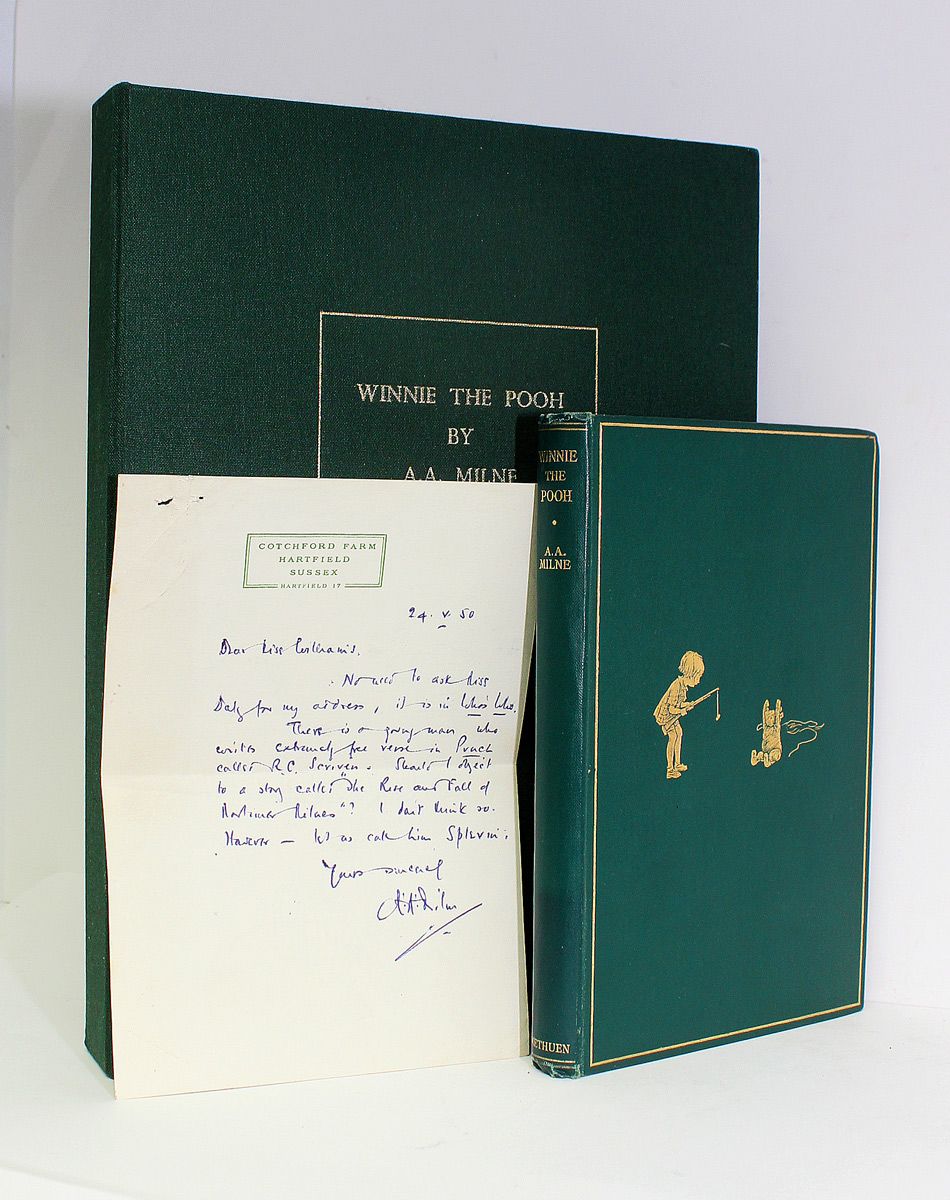 WINNIE THE POOH
BY
A.A. MILNE
WINNIE
THE
POOH
A.A.
MILNE
METHUEN
COTCHFORD FARM
HARTFIELD
SUSSEX
HARTFIELD 17
24. V. 50
Dear Miss Williams.
No need to ask Miss
Daly for my address, it is in Who's Who.
There is a young man who
writes extremely free verse in Punch
called R.C. Scriven. Should I object
to a story called "The Rise and Fall of
Mortimer Milnes"? I don't think so.
However — let us call him
Yours sincerely
A.A. Milne